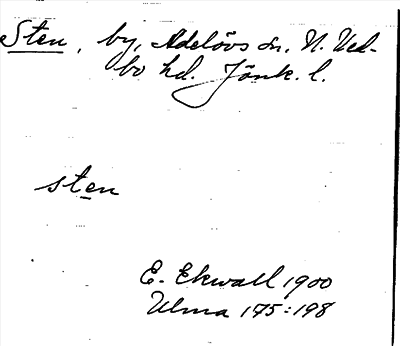 Sten, by, Adelövs sn, N. Ved-
bo hd. Jönk. l.
sten
E. Ekwall 1900
Ulma 175:198